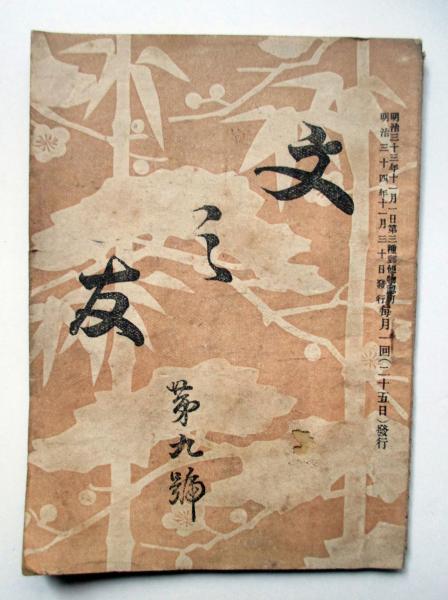 明治三十三年十一月一日第三種郵便物認可
明治三十四年十一月三十日發行
每月一回(二十五日)發行
文之友
第九號